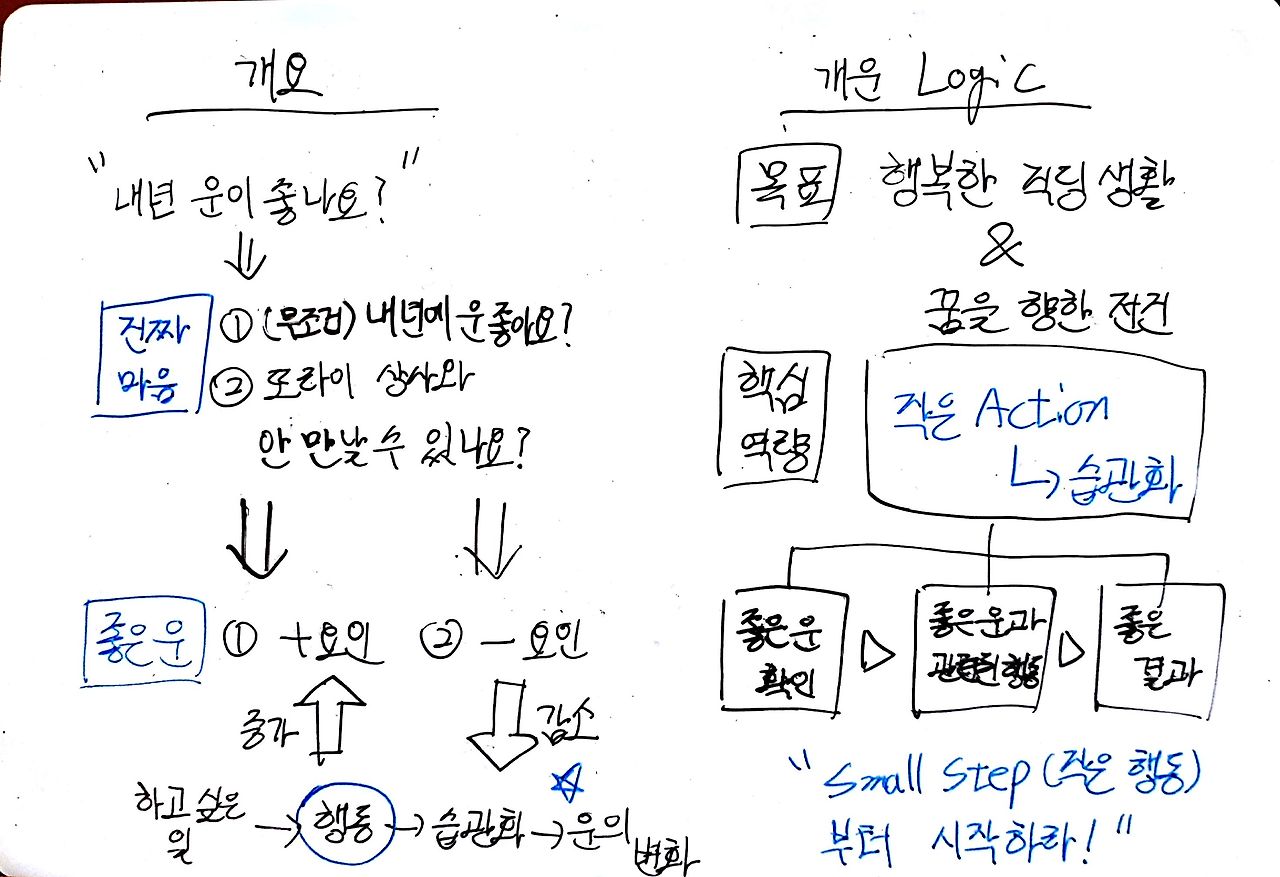 개요
"내년 운이 좋나요?"
진짜
마음
① (무조건) 내년에 운 좋아요?
② 또라이 상사와
안 만날 수 있나요?
좋은 운
① + 요인
② - 요인
증가
감소
하고 싶은
일
→ 행동 → 습관화 → 운의
변화
개운 Logic
목표
행복한 직딩 생활
&
꿈을 향한 전진
핵심
역량
작은 Action
↳ 습관화
좋은 운
확인
좋은 운과
관련된 행동
좋은
결과
"Small Step (작은 행동)
부터 시작하라!"